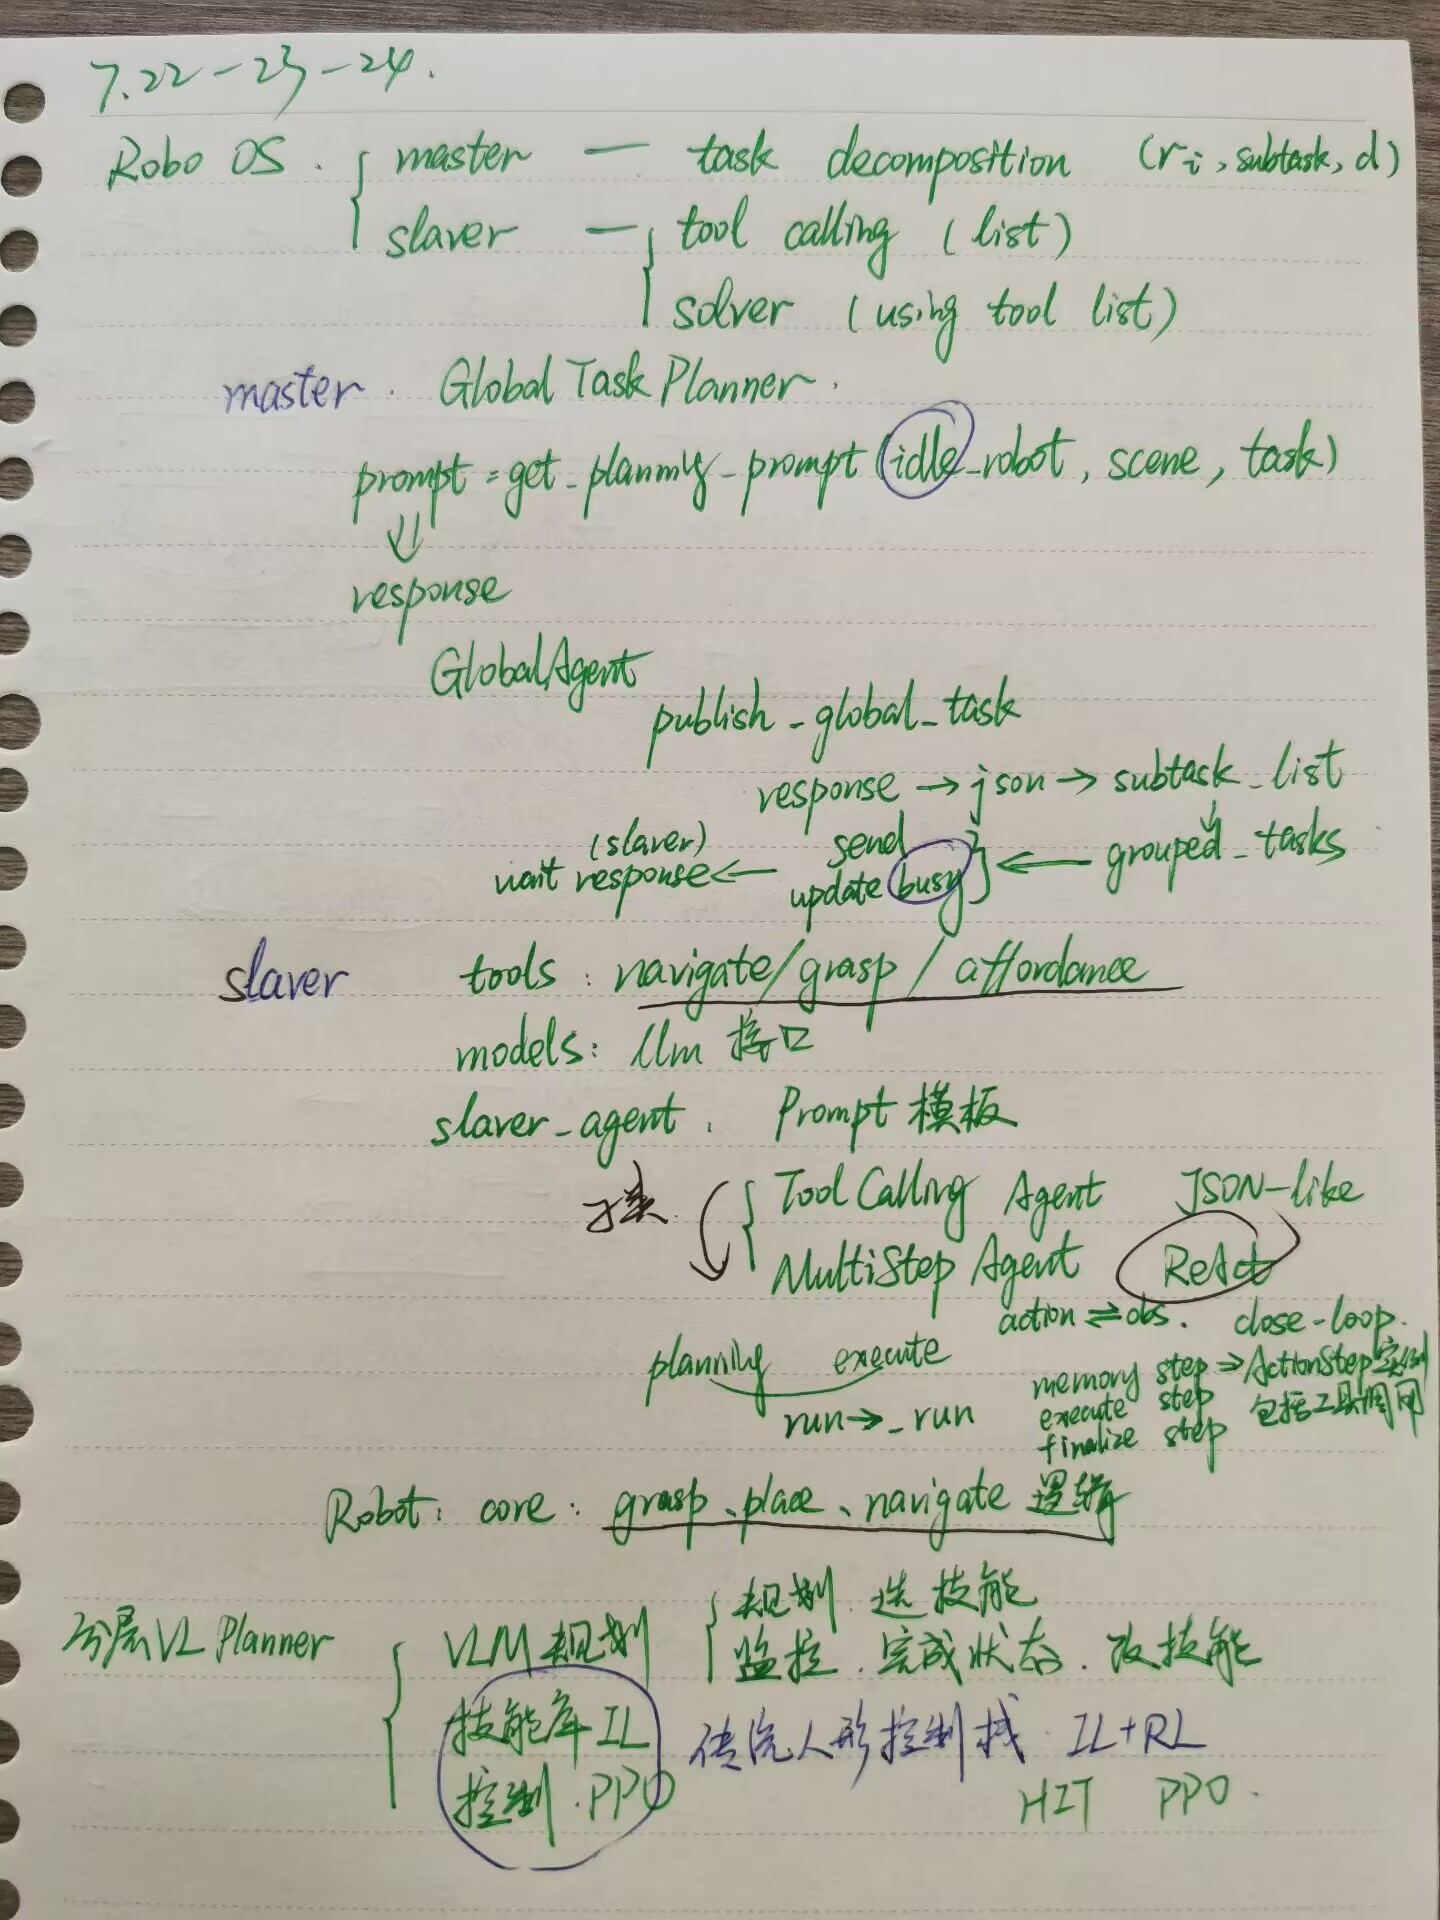 7.22-23-24.
Robo OS. { master — task decomposition (ri, subtask, d)
slaver — { tool calling (list)
solver (using tool list)
master. Global Task Planner.
prompt = get_planning_prompt (idle_robot, scene, task)
⇓
response
GlobalAgent
publish_global_task
response → json → subtask_list
↓
(slaver) wait response ← send update busy } ← grouped_tasks
slaver tools: navigate/grasp/affordance
models: llm 接口
slaver_agent. Prompt 模板
子类 { ToolCalling Agent JSON-like
MultiStep Agent ReAct
action ⇌ obs. close-loop.
planning execute
run → _run
memory step ⇒ ActionStep实例
execute step 包括工具调用
finalize step
Robot: core: grasp、place、navigate 逻辑
分层VL Planner { VLM规划 { 规划.选技能
监控.完成状态.改技能
技能库 IL 传统人形控制栈 IL+RL
控制.PPO HIT PPO.